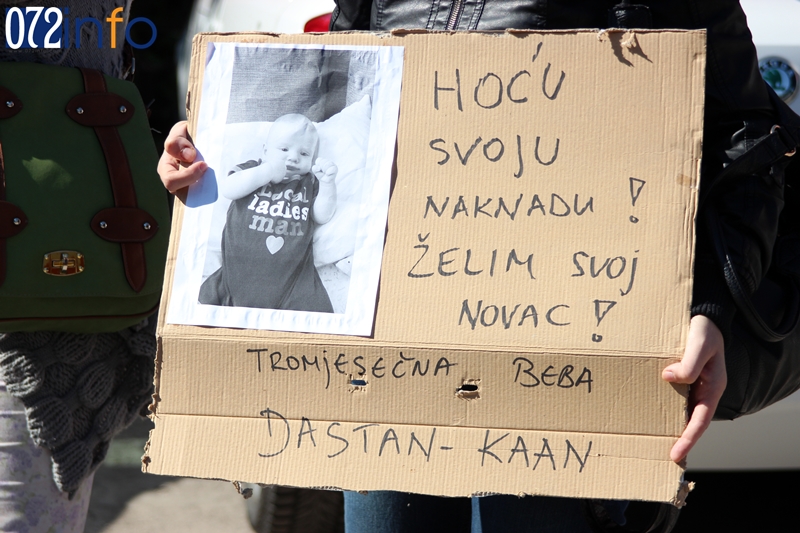 072info
local
ladies
man
HOĆU
SVOJU
NAKNADU !
ŽELIM SVOJ
NOVAC !
TROMJESEČNA BEBA
DASTAN-KAAN